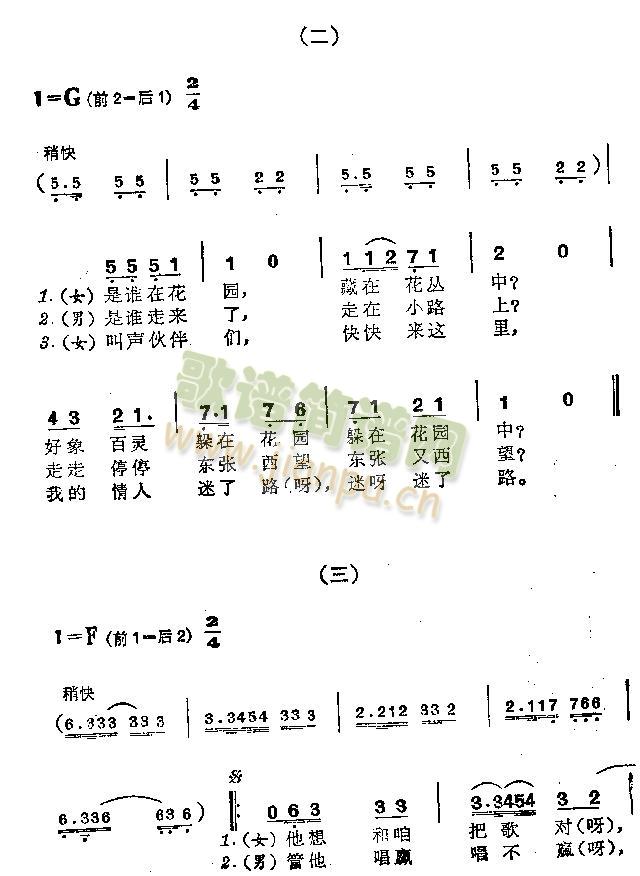 (二)
1=G (前2=后1) 2/4
稍快
(5.5 5 5 | 5 5 2 2 | 5.5 5 5 | 5 5 2 2)|
5 5 5 1 | 1 0 | 1 1 2 7 1 | 2 0
1.(女)是谁在花 园, 藏在 花丛 中?
2.(男)是谁走来 了, 走在 小路 上?
3.(女)叫声伙伴 们, 快快 来这 里,
4 3 2 1. | 7.1 7 6 | 7 1 2 1 | 1 0 ‖
好象 百灵 躲在 花园 躲在 花园 中?
走走 停停 东张 西望 东张 又西 望?
我的 情人 迷了 路(呀), 迷呀 迷了 路。
歌谱简谱网
www.jianpu.cn
(三)
1=F (前1=后2) 2/4
稍快
(6.333 33 3 | 3.3454 33 3 | 2.212 33 2 | 2.117 766
6.336 63 6) ‖: 0 6 3 | 3 3 | 3.3454 3 2
1.(女)他想 和咱 把歌 对(呀),
2.(男)管他 唱赢 唱不 赢(呀),